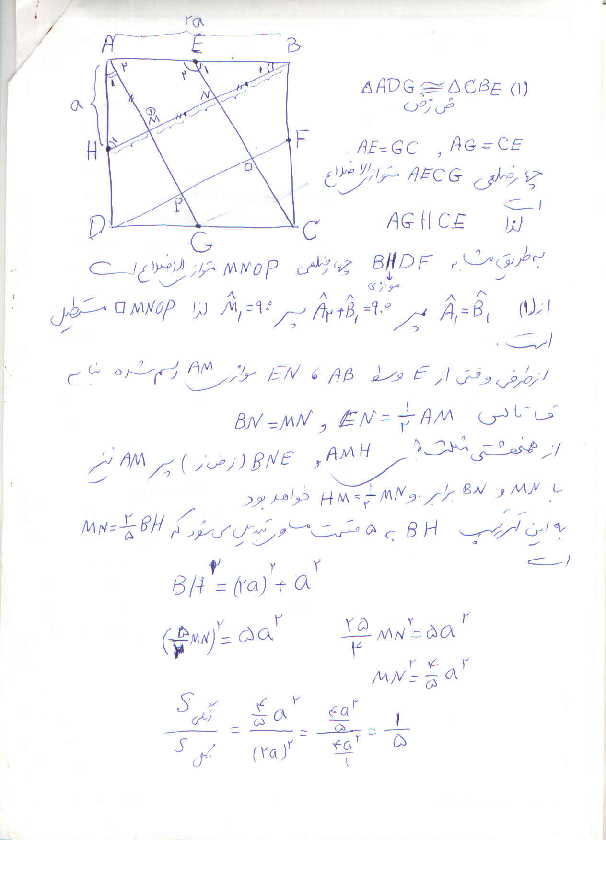 ۲a
A E B
a
H M N F
D P O G C
△ADG ≅ △CBE (۱)
ض ز ض
AE=GC , AG=CE
چهارضلعی AECG متوازی‌الاضلاع
است
لذا AG||CE
به طریق مشابه BHDF چهارضلعی MNOP متوازی‌الاضلاع است
موازی
از(۱) Â₁=B̂₁ پس Â₂+B̂₁=۹۰ پس M̂₁=۹۰ لذا □MNOP مستطیل
است.
از طرفی وقتی از E وسط AB، EN موازی AM رسم شده بنا به
ق تالس EN=½AM و BN=MN
از همنهشتی مثلث AMH و BNE (ز ض ز) پس AM نیز
با MN و BN برابر و HM=½MN خواهد بود
به این ترتیب BH به ۵ قسمت مساوی تبدیل می‌شود که MN=۲/۵ BH
است
BH²=(۲a)²+a²
(۵/۲ MN)²=۵a² ۲۵/۴ MN²=۵a²
MN²=۴/۵ a²
S رنگی / S کل = ۴/۵ a² / (۲a)² = ۴a²/۵ / ۴a²/۱ = ۱/۵